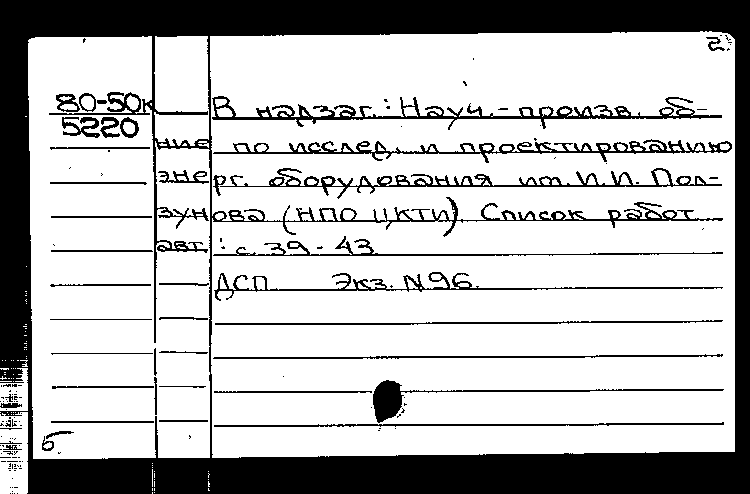 2.
80-50к В надзаг.: Науч.-произв. об-
5220
ние по исслед. и проектированию
энерг. оборудования им. И.И. Пол-
зунова (НПО ЦКТИ). Список работ
авт.: с. 39-43
ДСП Экз. N96.
б